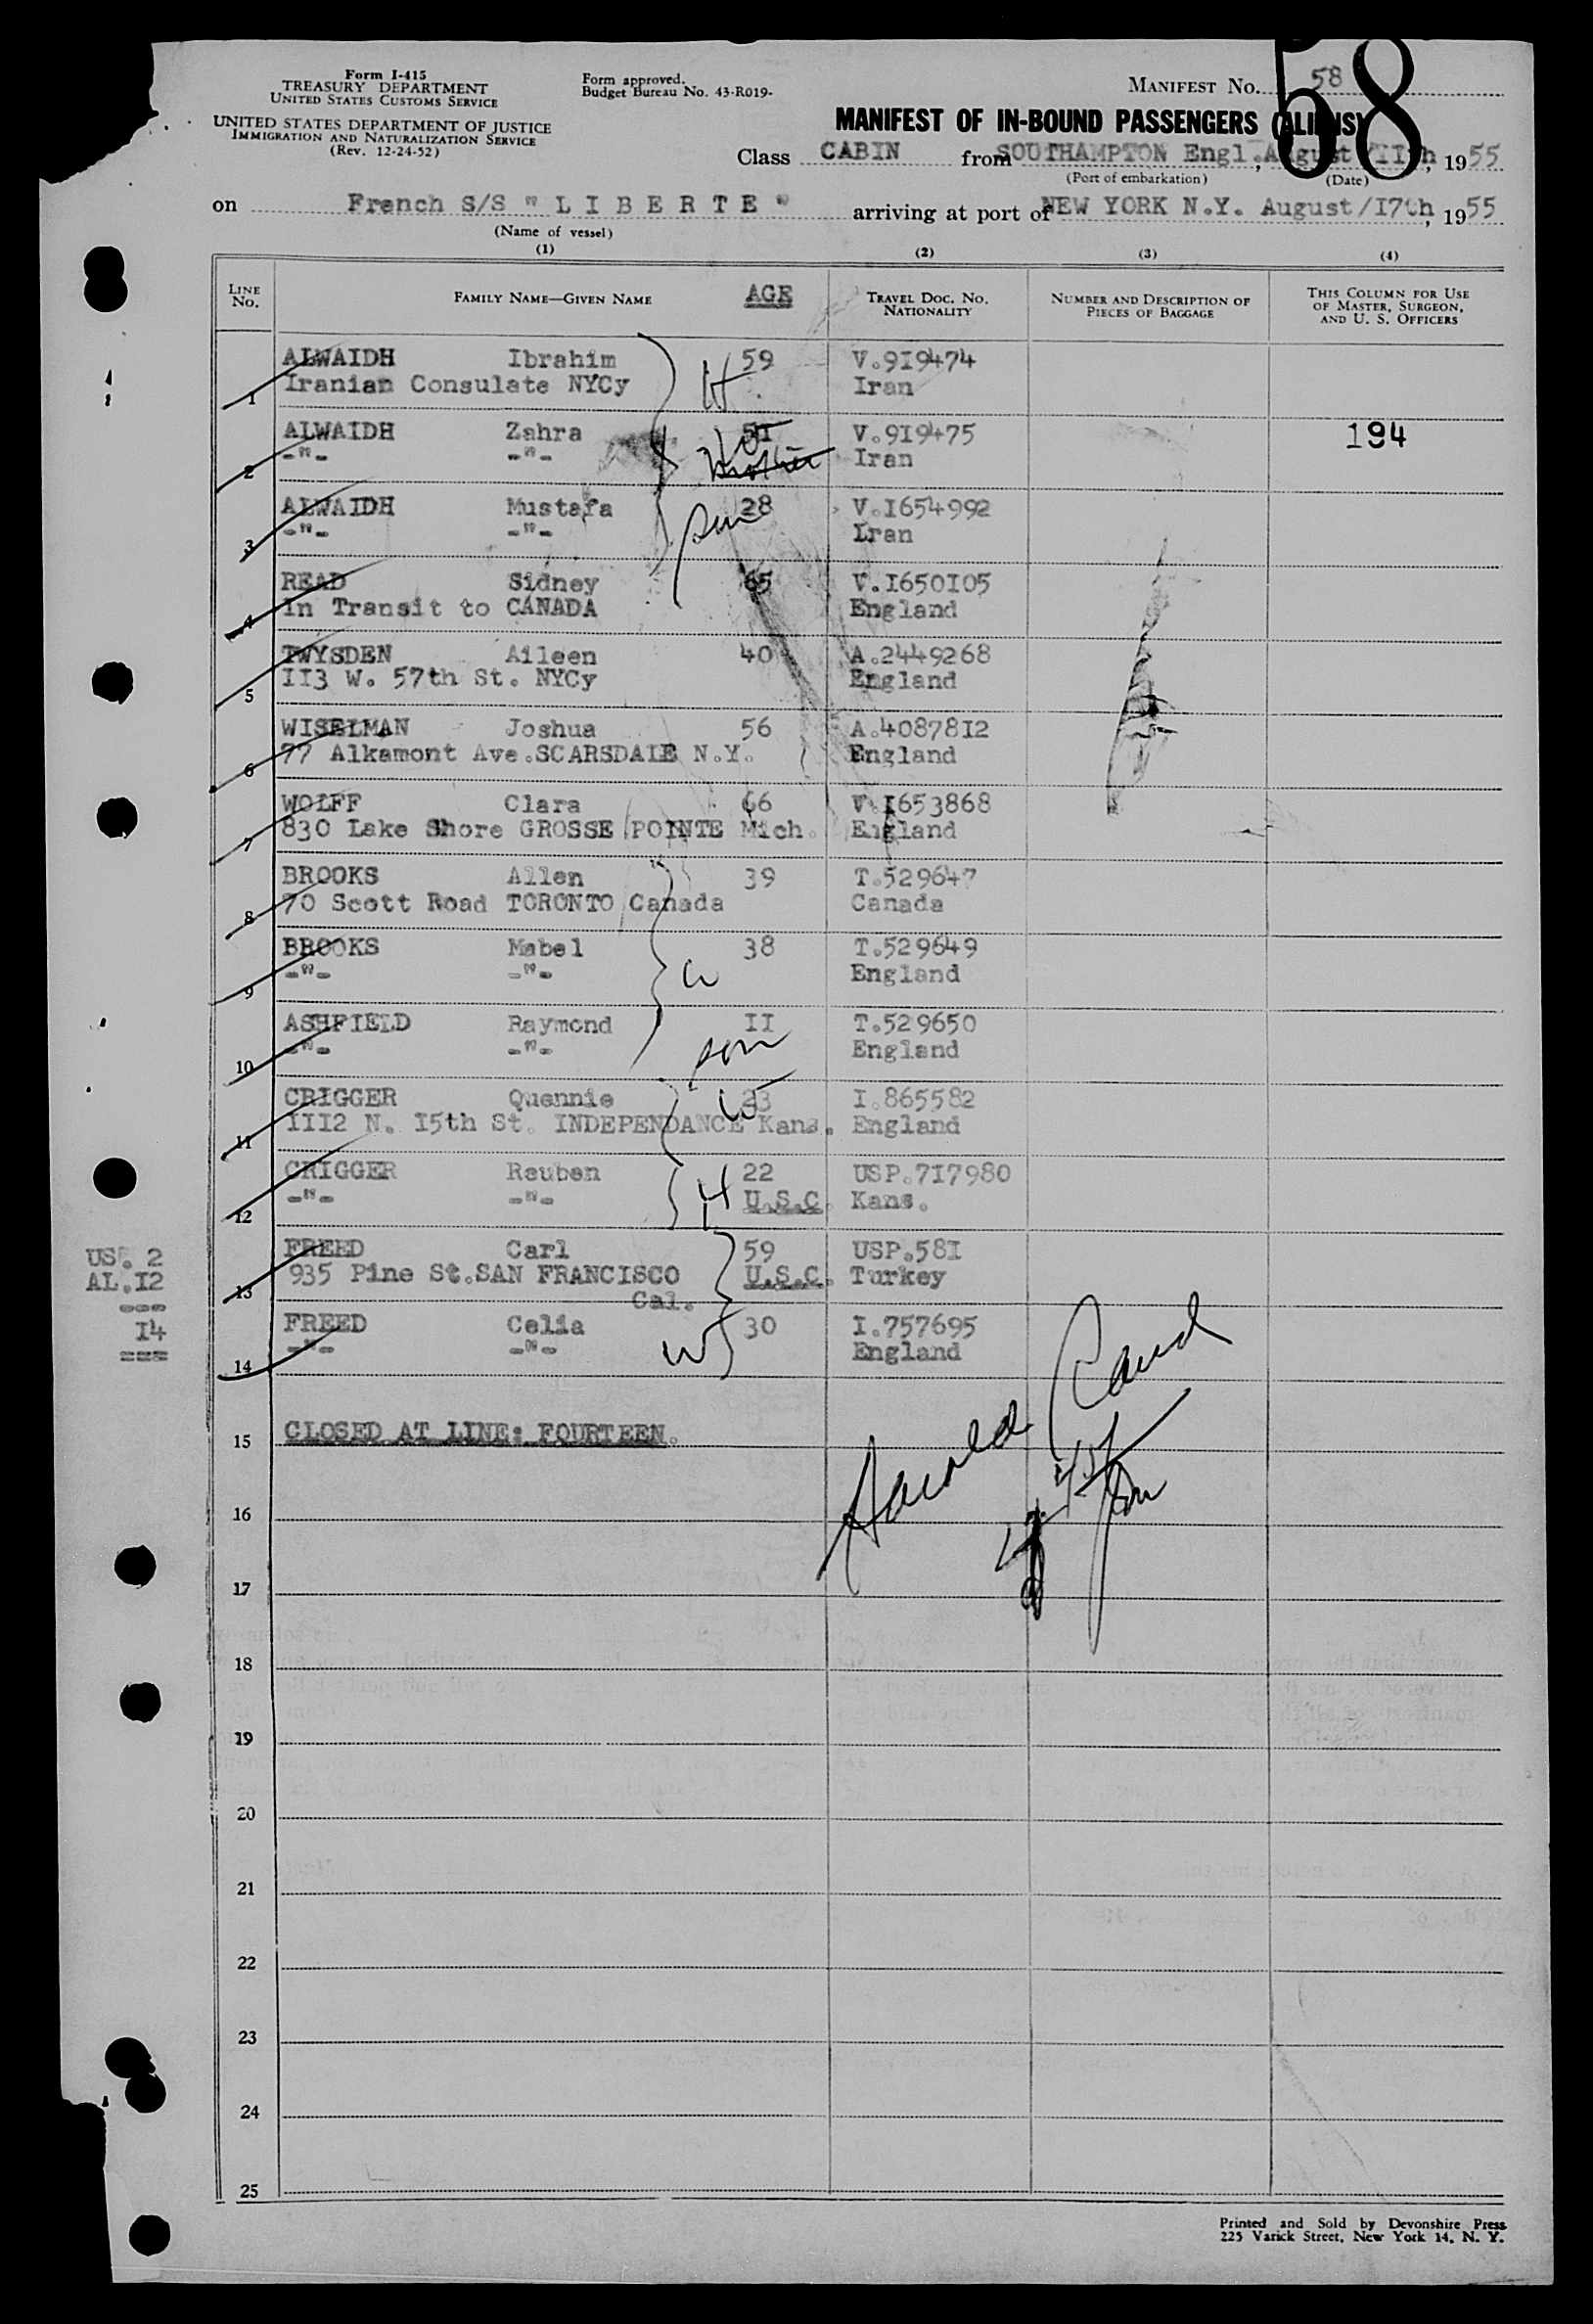 Form I-415
TREASURY DEPARTMENT
UNITED STATES CUSTOMS SERVICE
UNITED STATES DEPARTMENT OF JUSTICE
IMMIGRATION AND NATURALIZATION SERVICE
(Rev. 12-24-52)
Form approved.
Budget Bureau No. 43-R019-
MANIFEST No. 58
58
MANIFEST OF IN-BOUND PASSENGERS (ALIENS)
Class CABIN from SOUTHAMPTON Engl., August/IIth, 1955
(Port of embarkation) (Date)
on French S/S " L I B E R T E " arriving at port of NEW YORK N.Y. August/I7th, 1955
(Name of vessel)
(1) (2) (3) (4)
LINE No. FAMILY NAME—GIVEN NAME AGE TRAVEL DOC. No. NATIONALITY NUMBER AND DESCRIPTION OF PIECES OF BAGGAGE THIS COLUMN FOR USE OF MASTER, SURGEON, AND U. S. OFFICERS
ALWAIDH Ibrahim 59 V.9I9474
1 Iranian Consulate NYCy H Iran
ALWAIDH Zahra W V.9I9475 194
2 -"- -"- mother Iran
ALWAIDH Mustafa 28 V.I654992
3 -"- -"- son Iran
READ Sidney 65 V.I650I05
4 In Transit to CANADA England
TWYSDEN Aileen 40 A.2449268
5 II3 W. 57th St. NYCy England
WISELMAN Joshua 56 A.40878I2
6 77 Alkamont Ave.SCARSDALE N.Y. England
WOLFF Clara 66 V.I653868
7 830 Lake Shore GROSSE POINTE Mich. England
BROOKS Allen 39 T.529647
8 70 Scott Road TORONTO Canada Canada
BROOKS Mabel 38 T.529649
9 -"- -"- W England
ASHFIELD Raymond II T.529650
10 -"- -"- son England
CRIGGER Quennie 23 W I.865582
11 III2 N. I5th St. INDEPENDANCE Kans. England
CRIGGER Reuben 22 USP.7I7980
12 -"- -"- H U.S.C. Kans.
FREED Carl 59 USP.58I
13 935 Pine St.SAN FRANCISCO U.S.C. Turkey
Cal.
FREED Celia 30 I.757695
14 -"- -"- W England
USP. 2
AL.I2
---
I4
===
15 CLOSED AT LINE: FOURTEEN.
16
17
18
19
20
21
22
23
24
25
Printed and Sold by Devonshire Press
225 Varick Street, New York 14, N. Y.